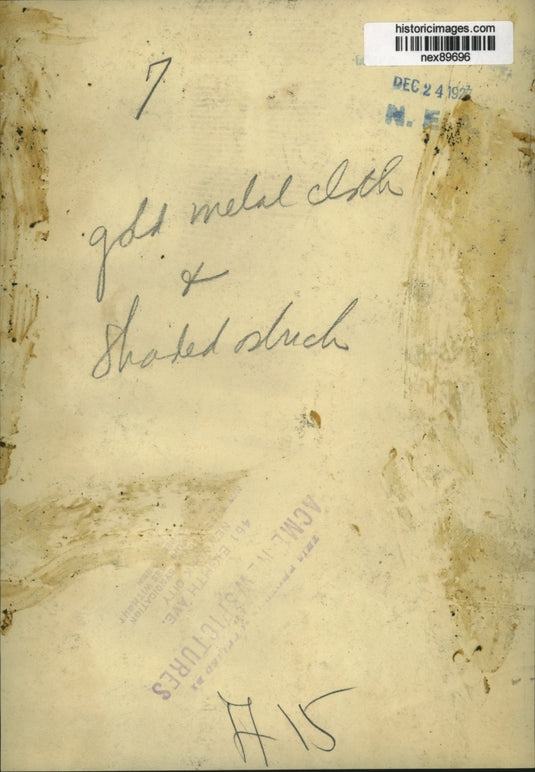 historicimages.com
nex89696
7
DEC 24 192
N. E.
gold metal cloth
&
Shaded ostrich
ACME NEWSPICTURES
461 EIGHTH AVE.
CITY
# 15